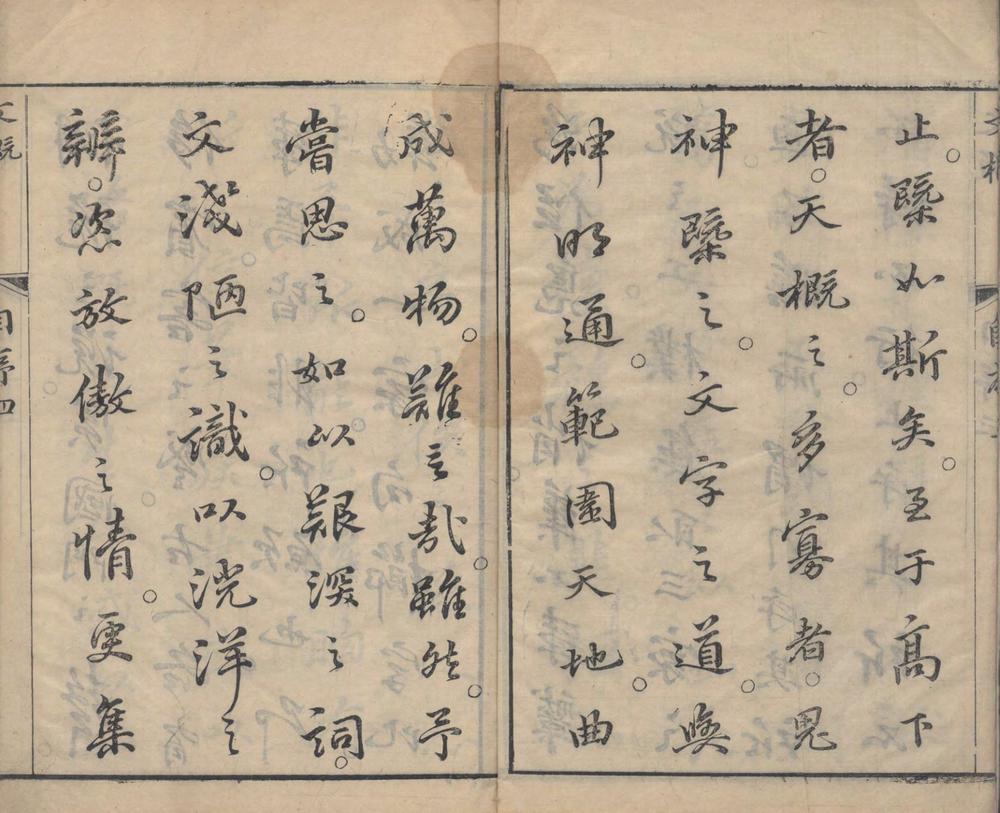 止。槩如斯矣。至于高下
者。天概之。多寡者。鬼
神槩之。文字之道。與
神明通。範圍天地。曲
成萬物。難言哉。雖然。予
嘗思之。如以艱深之詞。
文淺陋之識。以洸洋之
辨。恣放傲之情。更集
文概
自序四